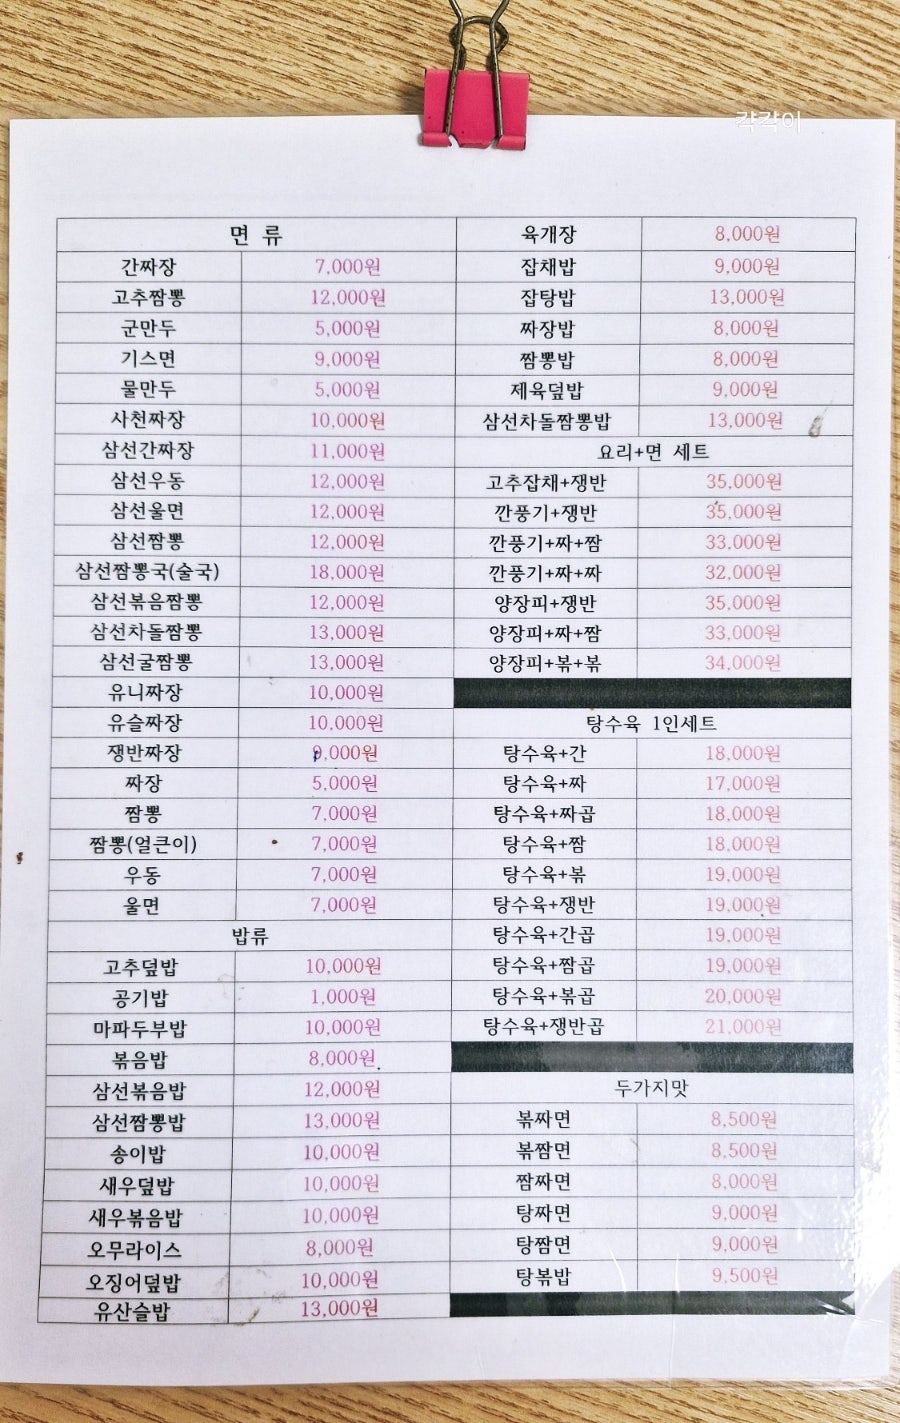 각각이
면 류
간짜장 7,000원
고추짬뽕 12,000원
군만두 5,000원
기스면 9,000원
물만두 5,000원
사천짜장 10,000원
삼선간짜장 11,000원
삼선우동 12,000원
삼선울면 12,000원
삼선짬뽕 12,000원
삼선짬뽕국(술국) 18,000원
삼선볶음짬뽕 12,000원
삼선차돌짬뽕 13,000원
삼선굴짬뽕 13,000원
유니짜장 10,000원
유슬짜장 10,000원
쟁반짜장 9,000원
짜장 5,000원
짬뽕 7,000원
짬뽕(얼큰이) 7,000원
우동 7,000원
울면 7,000원
밥류
고추덮밥 10,000원
공기밥 1,000원
마파두부밥 10,000원
볶음밥 8,000원
삼선볶음밥 12,000원
삼선짬뽕밥 13,000원
송이밥 10,000원
새우덮밥 10,000원
새우볶음밥 10,000원
오무라이스 8,000원
오징어덮밥 10,000원
유산슬밥 13,000원
육개장 8,000원
잡채밥 9,000원
잡탕밥 13,000원
짜장밥 8,000원
짬뽕밥 8,000원
제육덮밥 9,000원
삼선차돌짬뽕밥 13,000원
요리+면 세트
고추잡채+쟁반 35,000원
깐풍기+쟁반 35,000원
깐풍기+짜+짬 33,000원
깐풍기+짜+짜 32,000원
양장피+쟁반 35,000원
양장피+짜+짬 33,000원
양장피+볶+볶 34,000원
탕수육 1인세트
탕수육+간 18,000원
탕수육+짜 17,000원
탕수육+짜곱 18,000원
탕수육+짬 18,000원
탕수육+볶 19,000원
탕수육+쟁반 19,000원
탕수육+간곱 19,000원
탕수육+짬곱 19,000원
탕수육+볶곱 20,000원
탕수육+쟁반곱 21,000원
두가지맛
볶짜면 8,500원
볶짬면 8,500원
짬짜면 8,000원
탕짜면 9,000원
탕짬면 9,000원
탕볶밥 9,500원